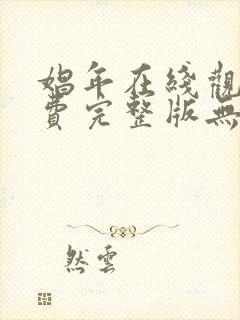 娼年在綫觀
費完整版無
然雲